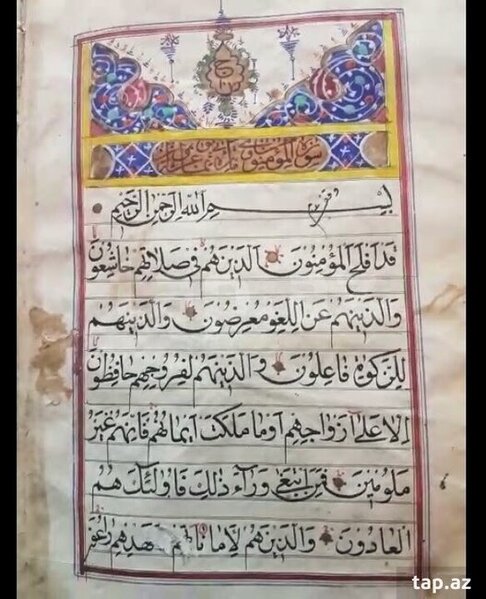 سورة المؤمنون مائة
بسم الله الرحمن الرحيم
قد افلح المؤمنون الذين هم في صلاتهم خاشعون
والذين هم عن اللغو معرضون والذين هم
للزكوة فاعلون والذين هم لفروجهم حافظون
الا على ازواجهم او ما ملكت ايمانهم فانهم غير
ملومين فمن ابتغى وراء ذلك فاولئك هم
العادون والذين هم لاماناتهم وعهدهم راعون
tap.az